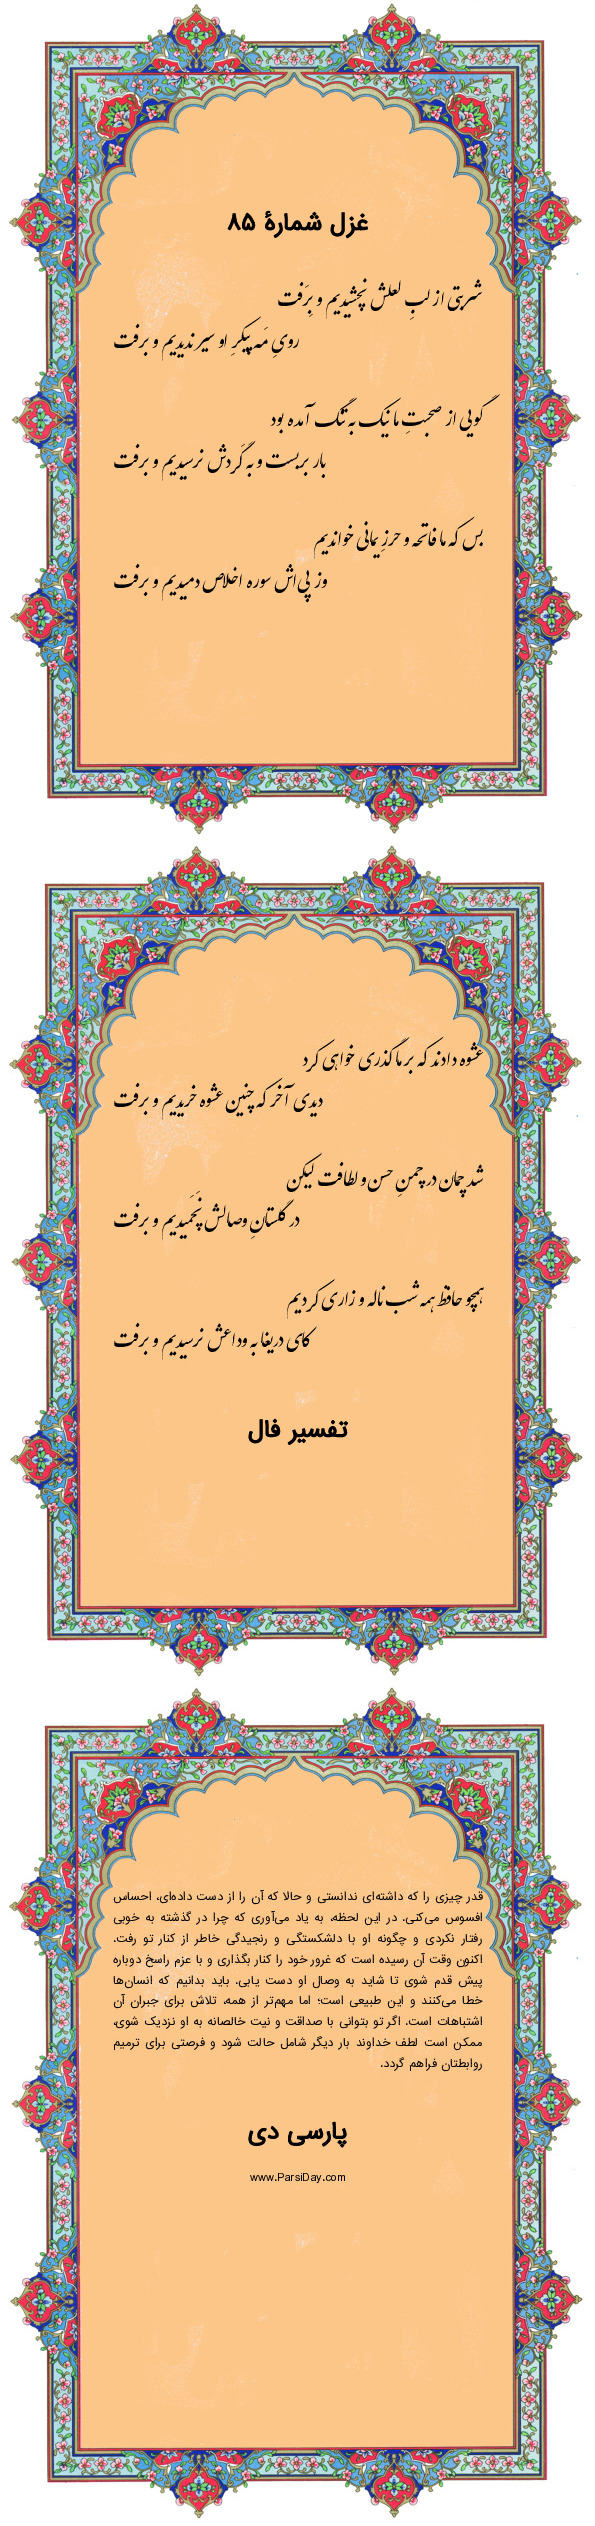 غزل شمارهٔ ۸۵
شربتی از لبِ لعلش نچشیدیم و بِرَفت
رویِ مَه پیکرِ او سیر ندیدیم و برفت
گویی از صحبتِ ما نیک به تَنگ آمده بود
بار بربست و به گَردش نرسیدیم و برفت
بس که ما فاتحه و حرزِ یمانی خواندیم
وز پی‌اش سوره اخلاص دمیدیم و برفت
عشوه دادند که بر ما گذری خواهی کرد
دیدی آخر که چنین عشوه خریدیم و برفت
شد چمان در چمنِ حسن و لطافت لیکن
در گلستانِ وصالش نَچَمیدیم و برفت
همچو حافظ همه شب ناله و زاری کردیم
کای دریغا به وداعش نرسیدیم و برفت
تفسیر فال
قدر چیزی را که داشته‌ای ندانستی و حالا که آن را از دست داده‌ای، احساس
افسوس می‌کنی. در این لحظه، به یاد می‌آوری که چرا در گذشته به خوبی
رفتار نکردی و چگونه او با دلشکستگی و رنجیدگی خاطر از کنار تو رفت.
اکنون وقت آن رسیده است که غرور خود را کنار بگذاری و با عزم راسخ دوباره
پیش قدم شوی تا شاید به وصال او دست یابی. باید بدانیم که انسان‌ها
خطا می‌کنند و این طبیعی است؛ اما مهم‌تر از همه، تلاش برای جبران آن
اشتباهات است. اگر تو بتوانی با صداقت و نیت خالصانه به او نزدیک شوی،
ممکن است لطف خداوند بار دیگر شامل حالت شود و فرصتی برای ترمیم
روابطتان فراهم گردد.
پارسی دی
www.ParsiDay.com